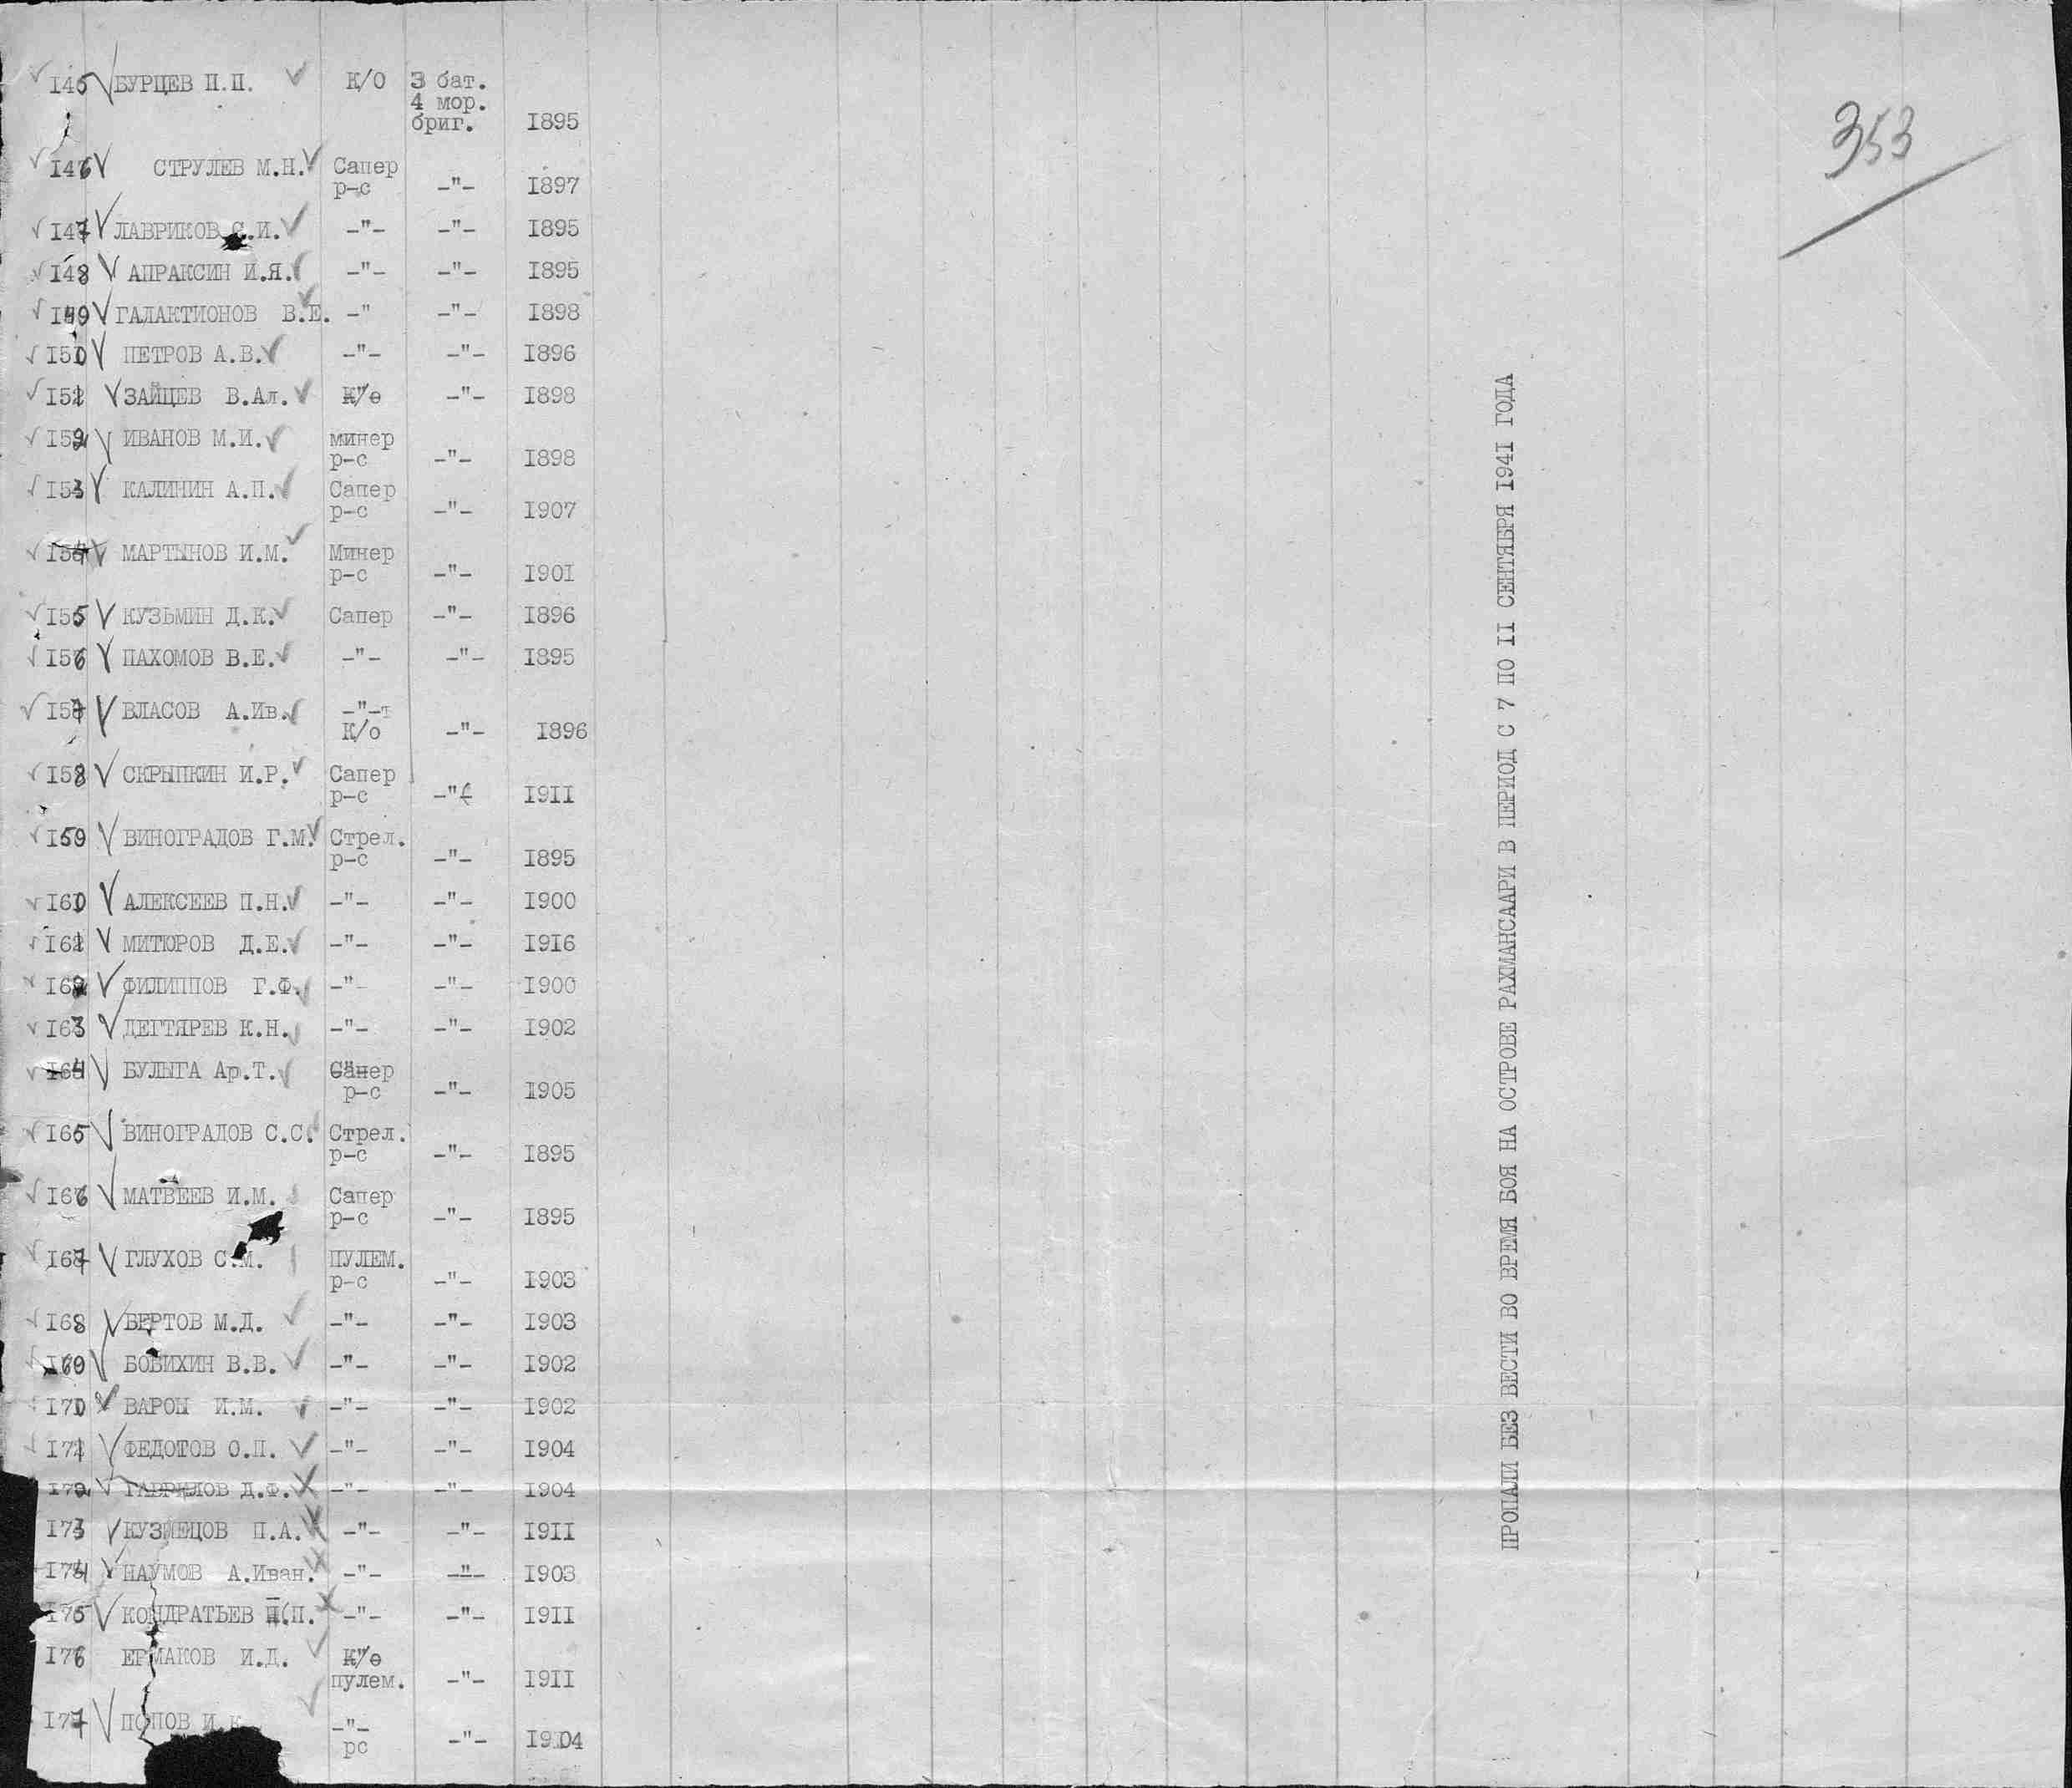 353
145 БУРЦЕВ П.П. К/О 3 бат.
4 мор.
бриг. 1895
146 СТРУЛЕВ М.Н. Сапер
р-с -"- 1897
147 ЛАВРИКОВ С.И. -"- -"- 1895
148 АПРАКСИН И.Я. -"- -"- 1895
149 ГАЛАКТИОНОВ В.Е. -" -"- 1898
150 ПЕТРОВ А.В. -"- -"- 1896
151 ЗАЙЦЕВ В.Ал. К/о -"- 1898
152 ИВАНОВ М.И. минер
р-с -"- 1898
153 КАЛИНИН А.П. Сапер
р-с -"- 1907
154 МАРТЫНОВ И.М. Минер
р-с -"- 1901
155 КУЗЬМИН Д.К. Сапер -"- 1896
156 ПАХОМОВ В.Е. -"- -"- 1895
157 ВЛАСОВ А.Ив. -"-т
К/о -"- 1896
158 СКРЫПКИН И.Р. Сапер
р-с -"- 1911
159 ВИНОГРАДОВ Г.М. Стрел.
р-с -"- 1895
160 АЛЕКСЕЕВ П.Н. -"- -"- 1900
161 МИТЮРОВ Д.Е. -"- -"- 1916
162 ФИЛИППОВ Г.Ф. -"- -"- 1900
163 ДЕГТЯРЕВ К.Н. -"- -"- 1902
164 БУЛЫГА Ар.Т. Сапер
р-с -"- 1905
165 ВИНОГРАДОВ С.С. Стрел.
р-с -"- 1895
166 МАТВЕЕВ И.М. Сапер
р-с -"- 1895
167 ГЛУХОВ С.М. ПУЛЕМ.
р-с -"- 1903
168 ВЕРТОВ М.Д. -"- -"- 1903
169 БОБИХИН В.В. -"- -"- 1902
170 ВАРОН И.М. -"- -"- 1902
171 ФЕДОТОВ О.П. -"- -"- 1904
172 ГАВРИЛОВ Д.Ф. -"- -"- 1904
173 КУЗНЕЦОВ П.А. -"- -"- 1911
174 НАУМОВ А.Иван. -"- -"- 1903
175 КОНДРАТЬЕВ П. -"- -"- 1911
176 ЕРМАКОВ И.Д. К/о
пулем. -"- 1911
177 ПОПОВ И.К -"-
рс -"- 1904
ПРОПАЛИ БЕЗ ВЕСТИ ВО ВРЕМЯ БОЯ НА ОСТРОВЕ РАХМАНСААРИ В ПЕРИОД С 7 ПО 11 СЕНТЯБРЯ 1941 ГОДА